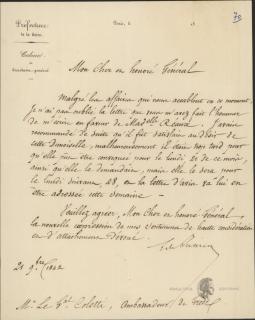 Préfecture
de la Seine
Cabinet
du
Secrétaire-général
Paris, le
18
70
Mon Cher et honoré Général
Malgré les affaires qui nous accablent en ce moment,
Je n'ai pas oublié la lettre que vous m'avez fait l'honneur
de m'écrire en faveur de Mad.elle
recommandé de suite qu'il fut satisfait au désir de
cette Demoiselle, malheureusement il était trop tard pour
qu'elle pût être convoquée pour le lundi 21 de ce mois,
ainsi qu'elle le demandait, mais elle le sera pour
le lundi suivant, 28, et la lettre d'avis va lui être
adressée cette semaine.
Veuillez agréer, Mon Cher et honoré Général,
la nouvelle expression de mes sentiments de haute considération
et d'attachement dévoué.
21 9bre 1842
Mr. Le Gal Coletti, Ambassadeur de Grèce